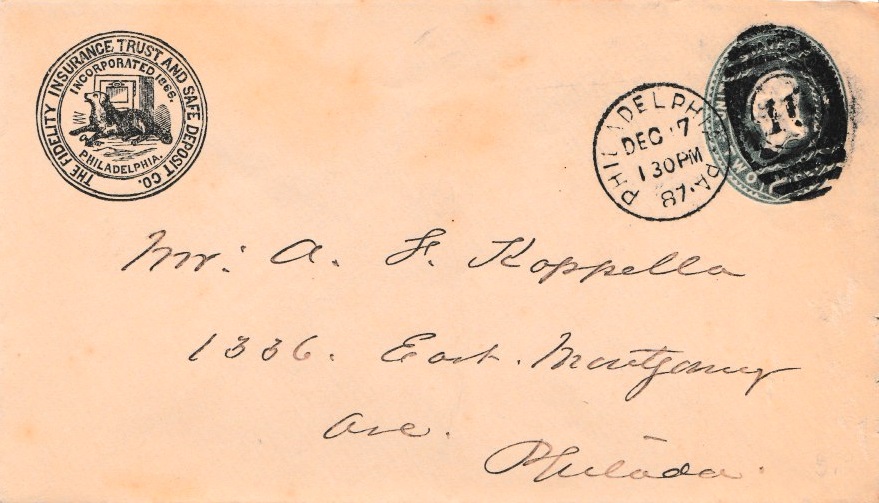 THE FIDELITY INSURANCE, TRUST AND SAFE DEPOSIT CO.
INCORPORATED 1866.
PHILADELPHIA.
PHILADELPHIA PA.
DEC 17
130PM
87
11
Mr: A. F. Koppella
1336. East. Montgomery
Ave.
Philada.